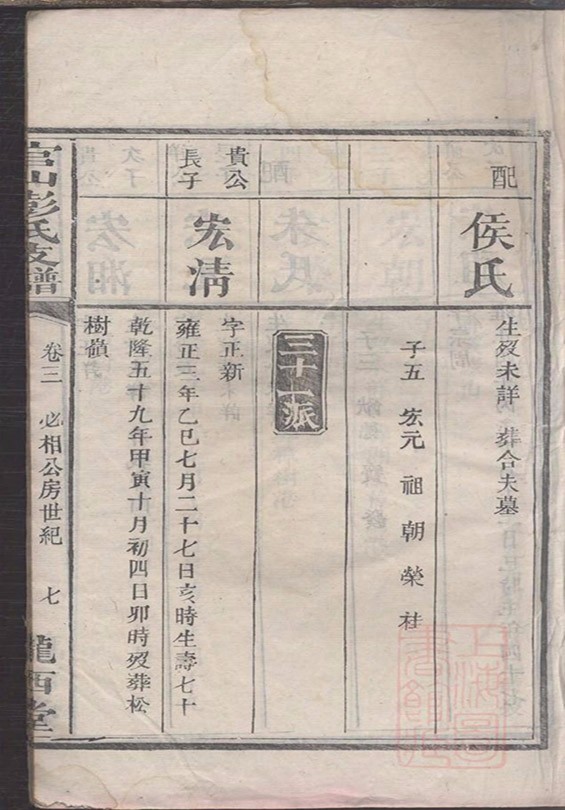 配
侯氏
生歿未詳 葬合夫墓
子五 宏元 祖 朝 榮 桂
三十一派
貴公
長子
宏清
字正新
雍正三年乙巳七月二十七日亥時生壽七十
乾隆五十九年甲寅十月初四日卯時歿葬松
樹嶺
官山彭氏支譜
卷三 必相公房世紀 七
隴西堂
上海圖
書館藏